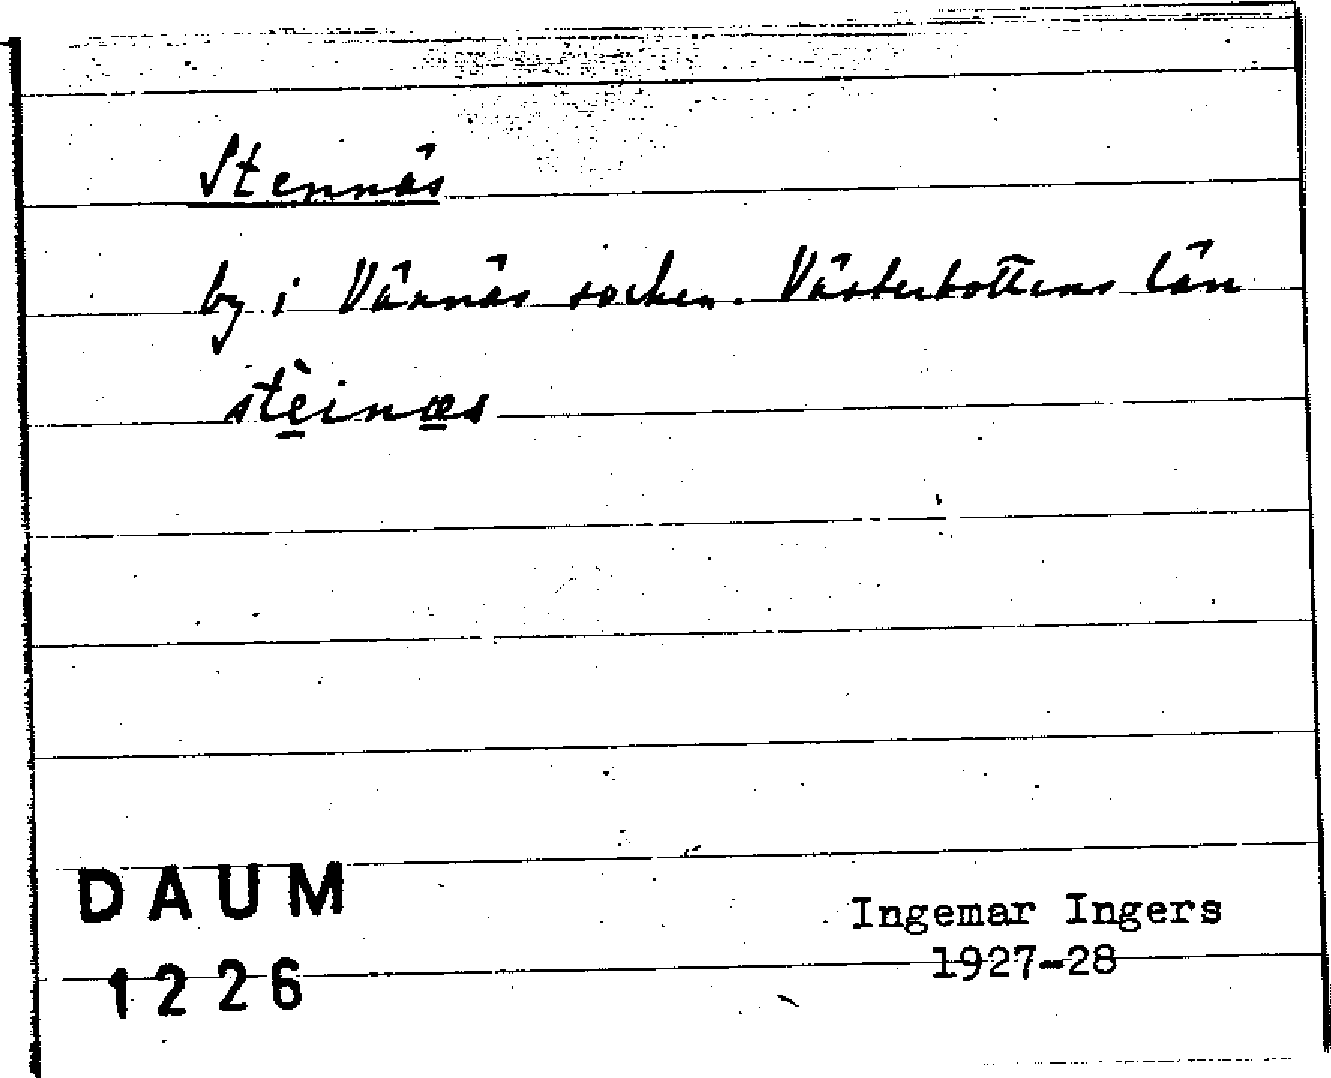 Stennäs
by i Vännäs socken. Västerbottens län
stèinæs
DAUM
1226
Ingemar Ingers
1927-28